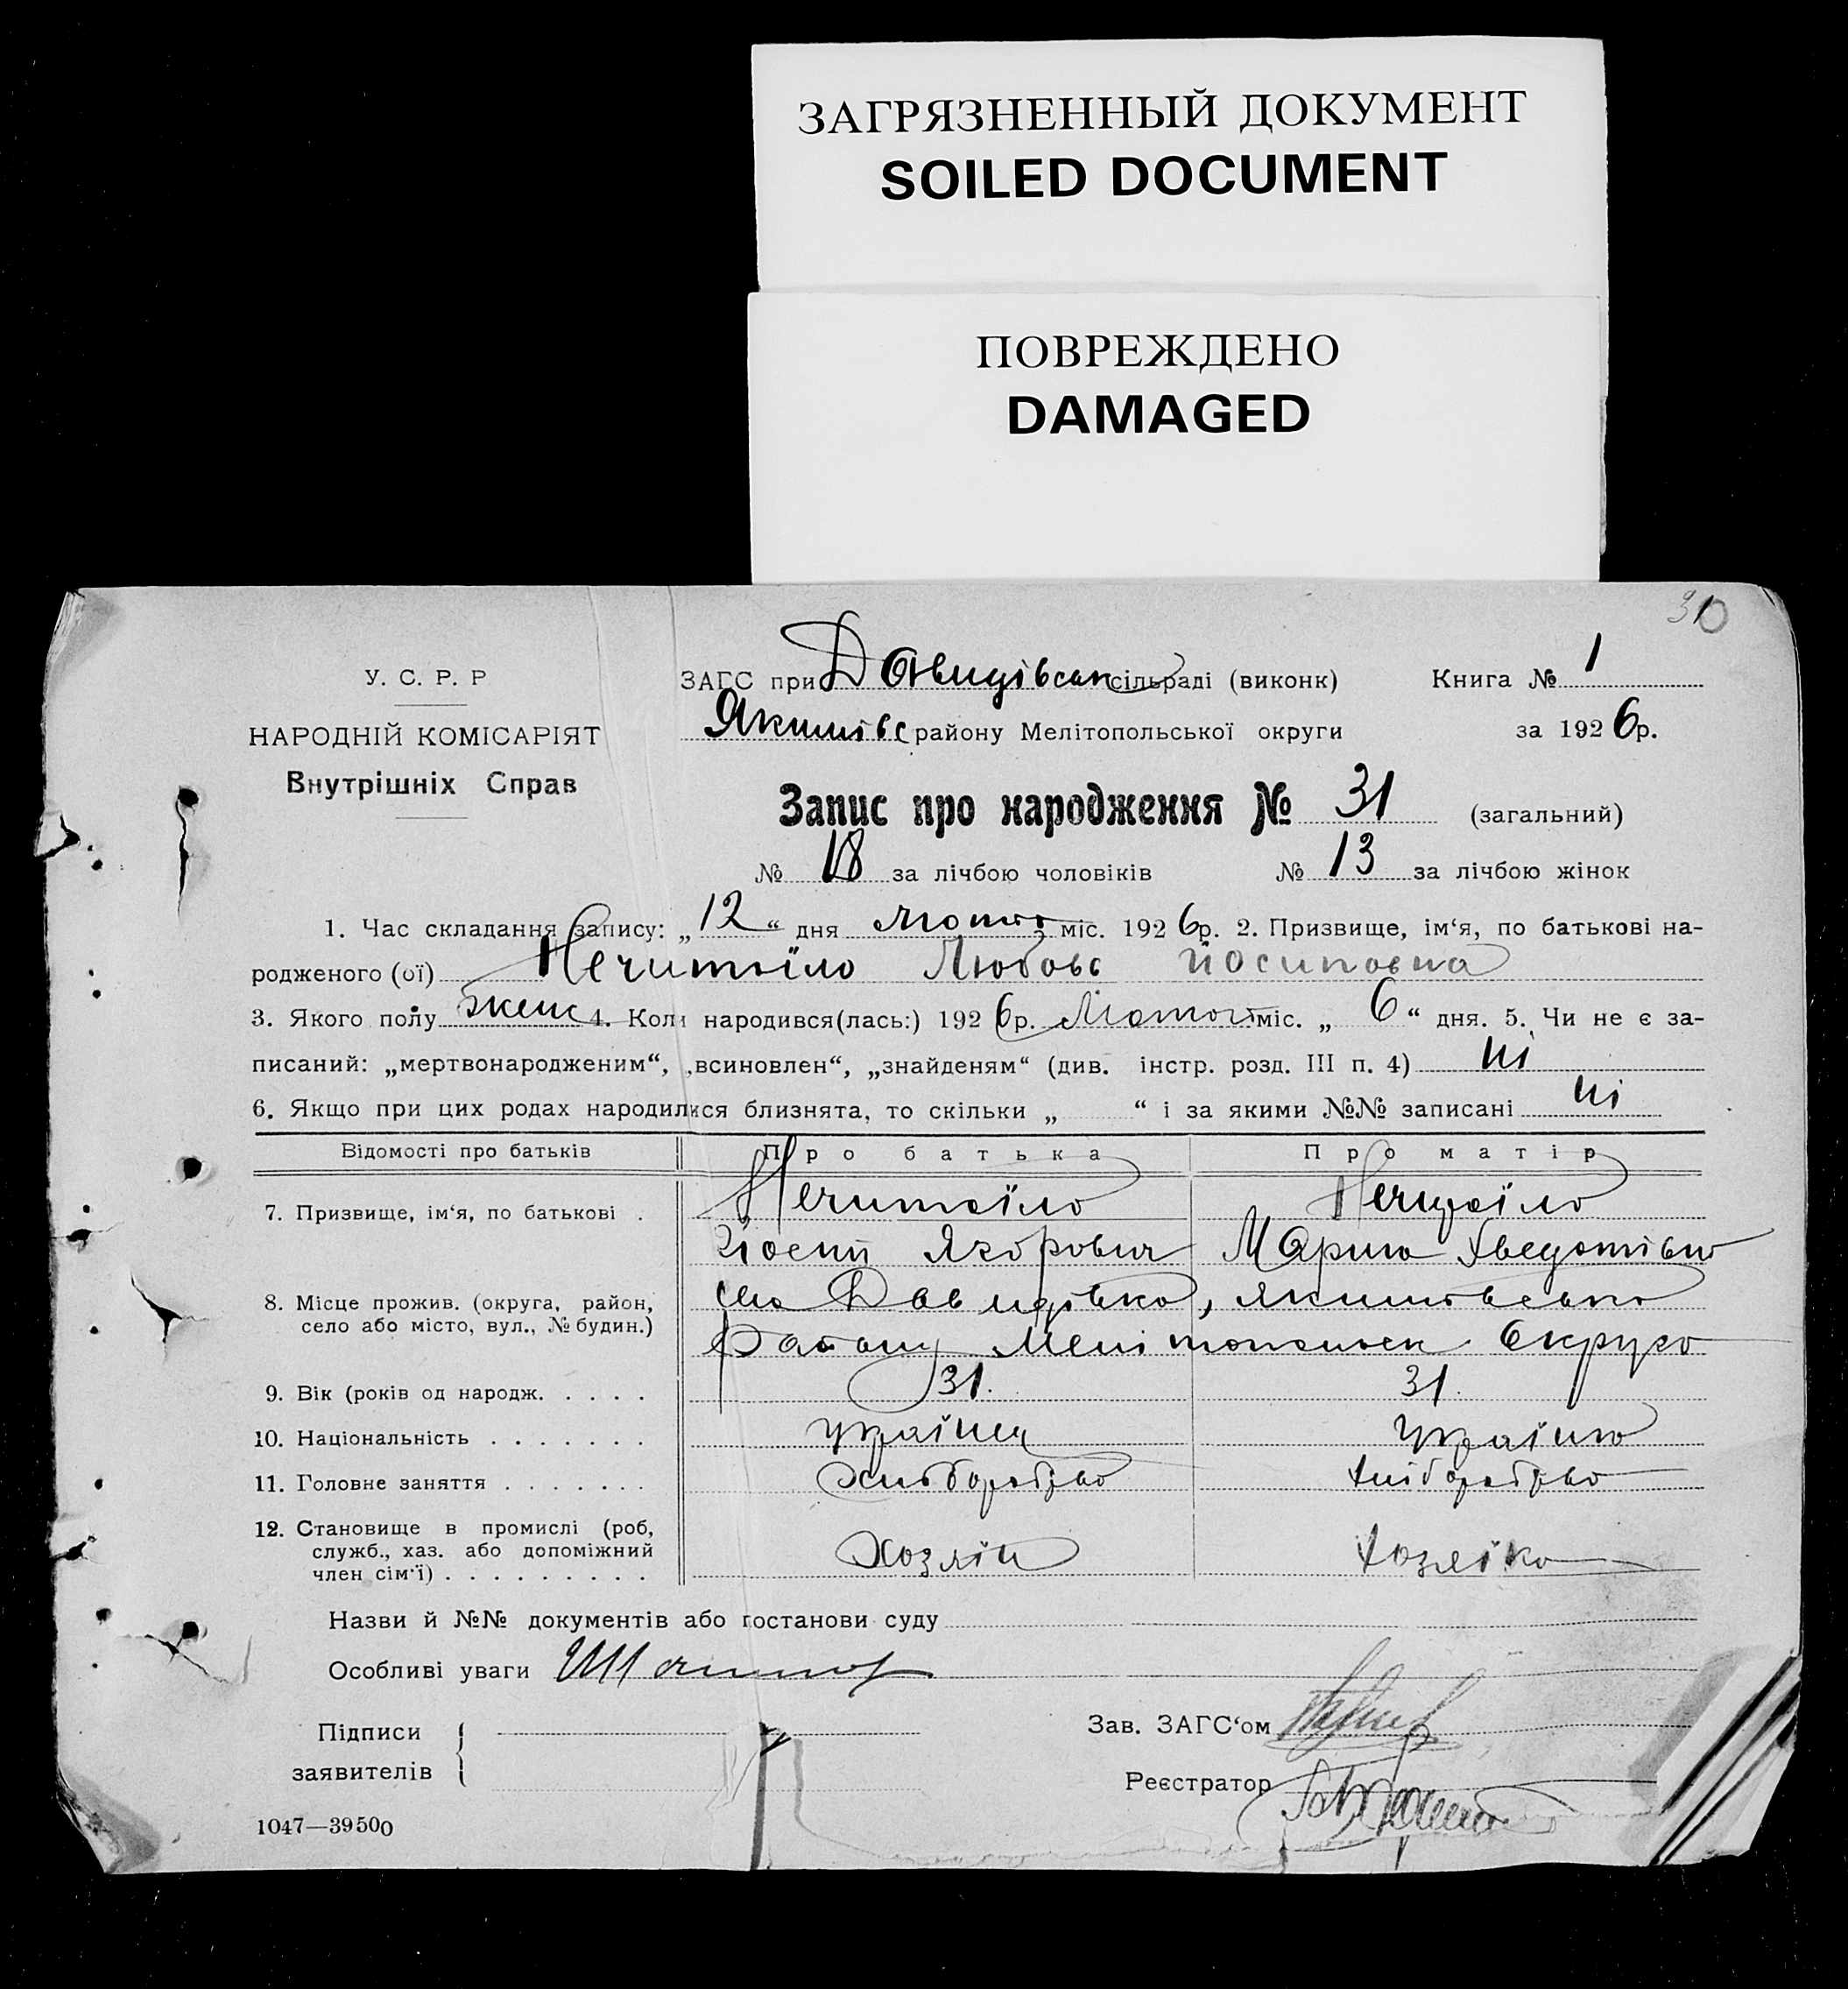 ЗАГРЯЗНЕННЫЙ ДОКУМЕНТ
SOILED DOCUMENT
ПОВРЕЖДЕНО
DAMAGED
310
У. С. Р. Р
НАРОДНІЙ КОМІСАРІЯТ
Внутрішніх Справ
ЗАГС при Давидівськ сільраді (виконк) Книга № 1
Якимівс району Мелітопольської округи за 1926р.
Запис про народження № 31 (загальний)
№ 18 за лічбою чоловіків № 13 за лічбою жінок
1. Час складання запису: „12“ дня лютого міс. 1926р. 2. Призвище, ім‘я, по батькові на-
родженого (ої) Нечитайло Любовь Йосиповна
3. Якого полу женс 4. Коли народився(лась:) 1926р. Лютого міс. „6“ дня. 5. Чи не є за-
писаний: „мертвонародженим“, „всиновлен“, „знайденям“ (див. інстр. розд. III п. 4) ні
6. Якщо при цих родах народилися близнята, то скільки „ “ і за якими №№ записані ні
Відомості про батьків Про батька Про матір
7. Призвище, ім‘я, по батькові . Нечитаїло Нечитаїло
Йосип Ягорович Марина Хведотівна
8. Місце прожив. (округа, район, село або місто, вул., № будин.) село Давидівка, Якимовсько
Району Мелітопольськ Округа
9. Вік (років од народж. . . . . 31. 31.
10. Національність . . . . . . . українец Українка
11. Головне заняття . . . . . . . Хліборобство Хліборобство
12. Становище в промислі (роб,
служб., хаз. або допоміжний
член сім‘ї) . . . . . . . . . Хозяін Хозяїка
Назви й №№ документів або постанови суду
Особливі уваги
Підписи
заявителів
Зав. ЗАГС‘ом
Реєстратор
1047—39500